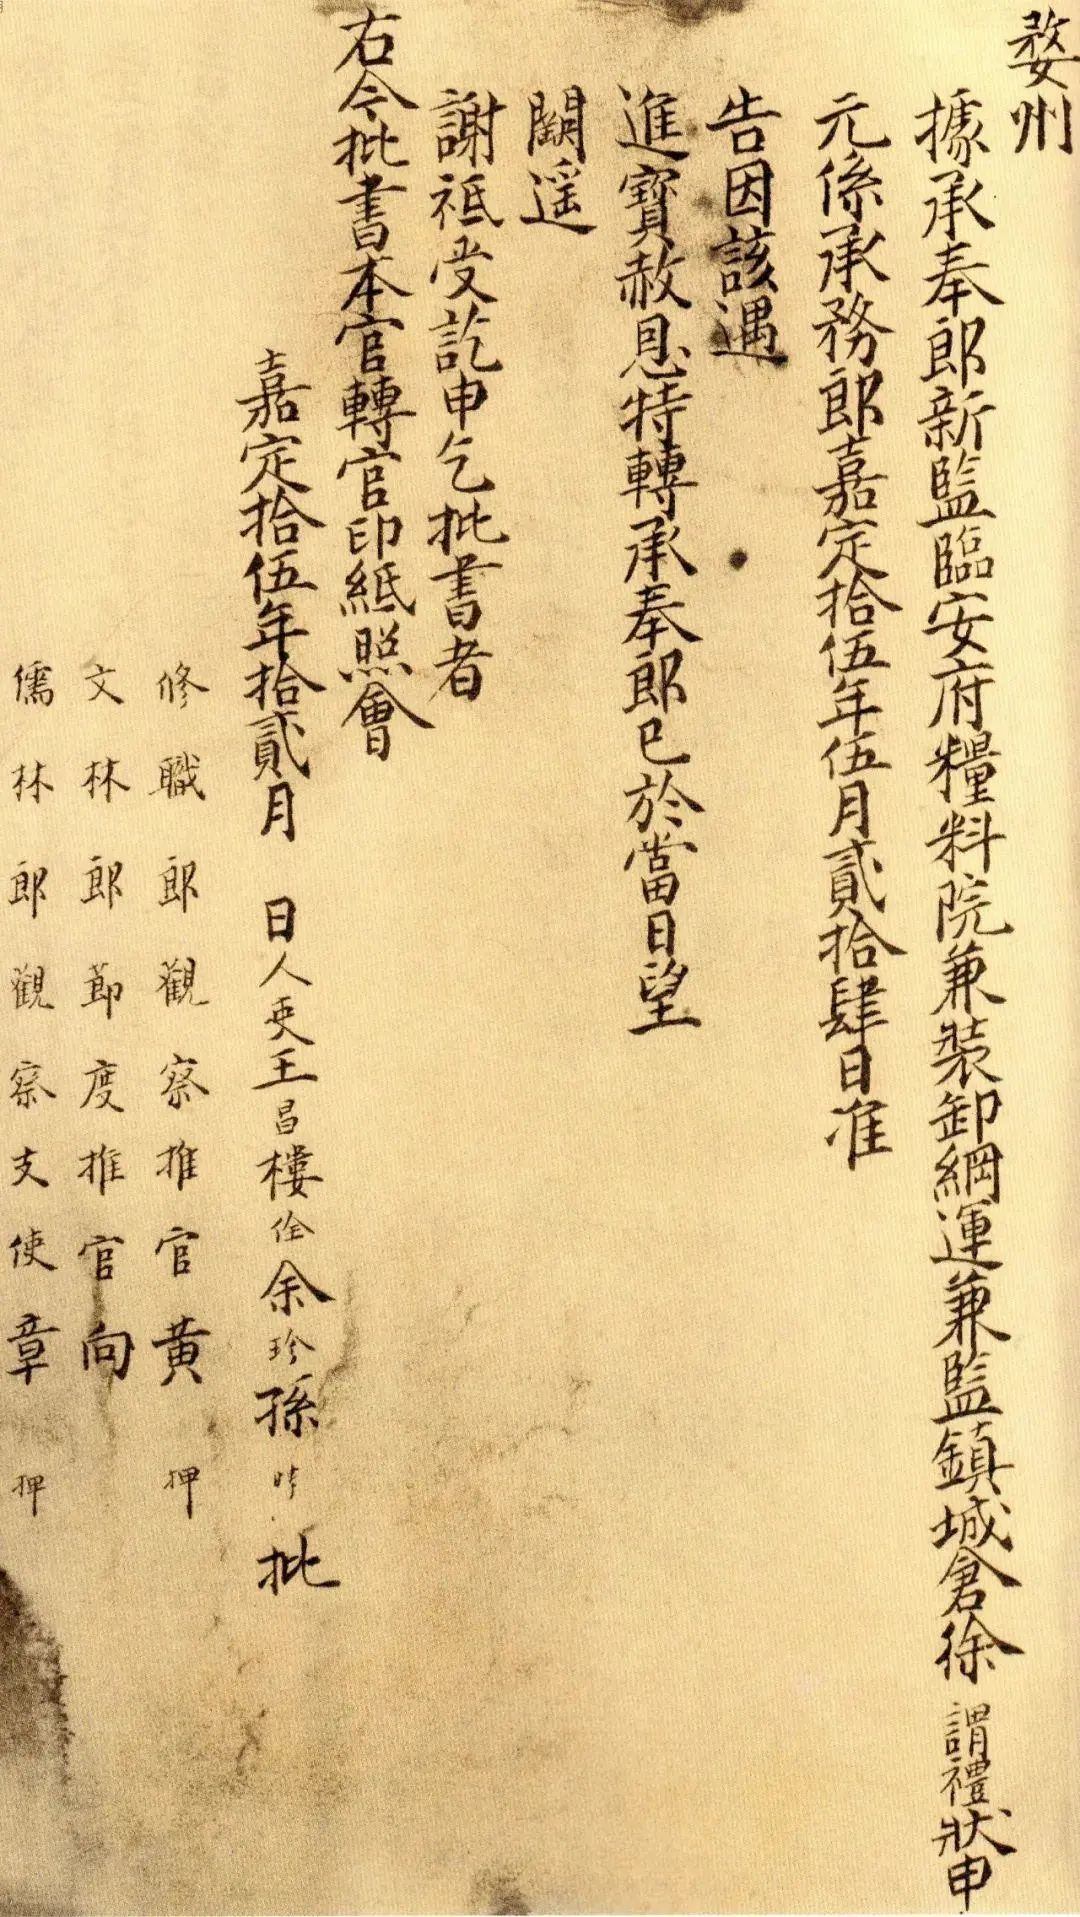 婺州
據承奉郎新監臨安府糧料院兼裝卸綱運兼監鎮城倉徐謂禮狀申
元係承務郎嘉定拾伍年伍月貳拾肆日准
告因該遇
進寶赦恩特轉承奉郎已於當日望
闕遥
謝祗受訖申乞批書者
右今批書本官轉官印紙照會
嘉定拾伍年拾貳月 日人吏王昌樓佺余珍孫 批
修職郎觀察推官黄 押
文林郎節度推官向
儒林郎觀察支使章 押